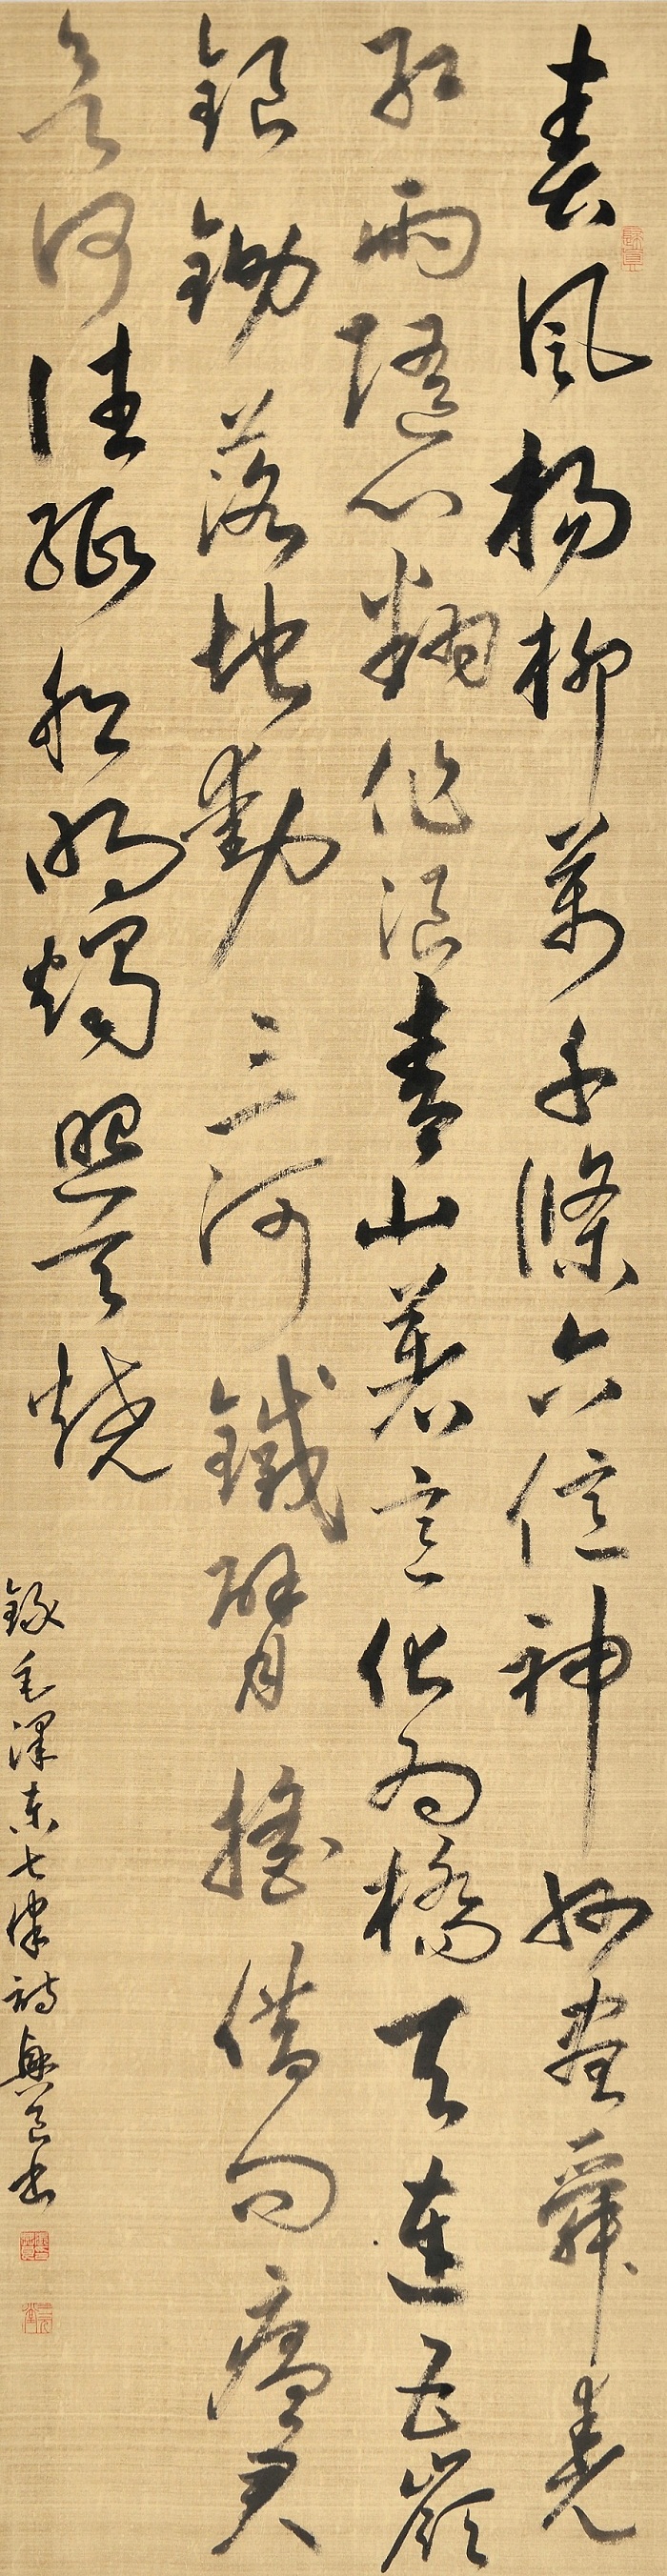 春風楊柳萬千條六億神州盡舜堯
紅雨隨心翻作浪青山著意化為橋天連五嶺
銀鋤落地動三河鐵臂搖借問瘟君
欲何往紙船明燭照天燒
錄毛澤東七律詩興書